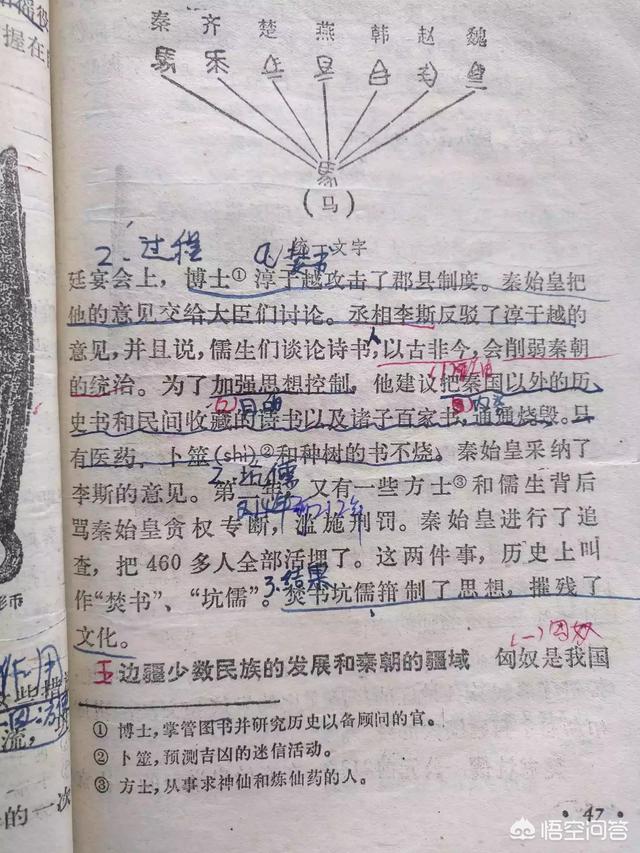 秦 齐 楚 燕 韩 赵 魏
握在
(马)
统一文字
2、过程
焚书
廷宴会上，博士①淳于越攻击了郡县制度。秦始皇把
他的意见交给大臣们讨论。丞相李斯反驳了淳于越的
意见，并且说，儒生们谈论诗书，以古非今，会削弱秦朝
的统治。为了加强思想控制，他建议把秦国以外的历
(2)目的
内容
史书和民间收藏的诗书以及诸子百家书，通通烧毁。只
有医药、卜筮(shì)②和种树的书不烧。秦始皇采纳了
2、坑儒
李斯的意见。第二年，又有一些方士③和儒生背后
前212年
骂秦始皇贪权专断，滥施刑罚。秦始皇进行了追
查，把460多人全部活埋了。这两件事，历史上叫
作“焚书”、“坑儒”。焚书坑儒箝制了思想，摧残了
3、结果
文化。
(一)匈奴
五 边疆少数民族的发展和秦朝的疆域 匈奴是我国
① 博士，掌管图书并研究历史以备顾问的官。
② 卜筮，预测吉凶的迷信活动。
③ 方士，从事求神仙和炼仙药的人。
形币
作用
流，
的一次
·47·
悟空问答